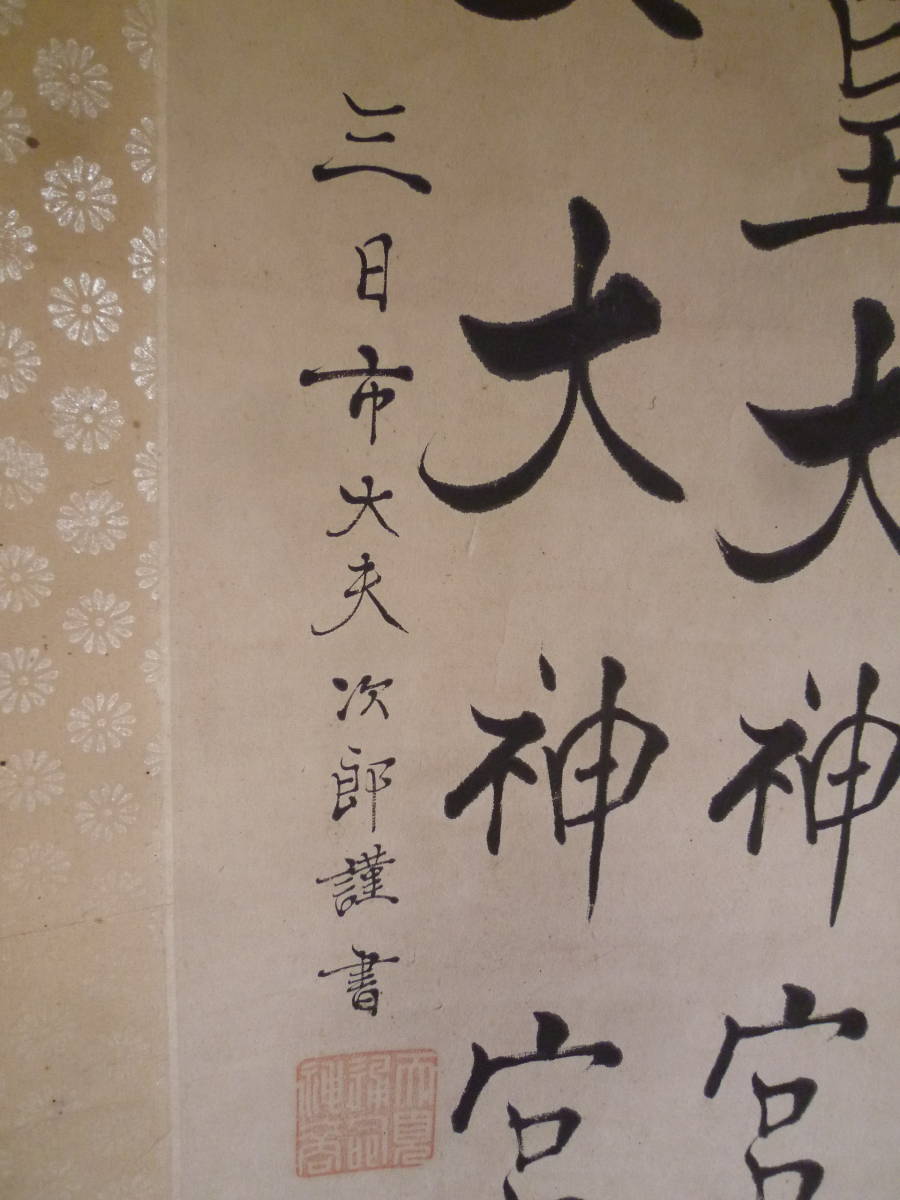 皇大神宮
大神宮
三日市大夫次郎謹書